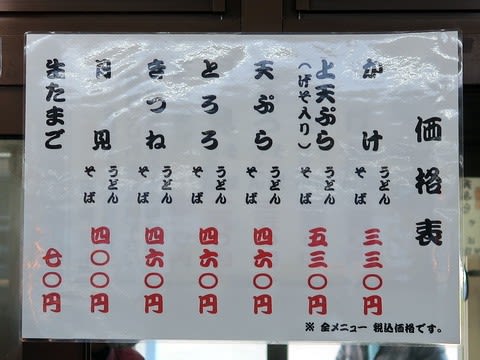 価格表
かけ うどん そば 三三〇円
上天ぷら(げそ入り) うどん そば 五三〇円
天ぷら うどん そば 四六〇円
とろろ うどん そば 四六〇円
きつね うどん そば 四六〇円
月見 うどん そば 四〇〇円
生たまご 七〇円
※ 全メニュー 税込価格です。